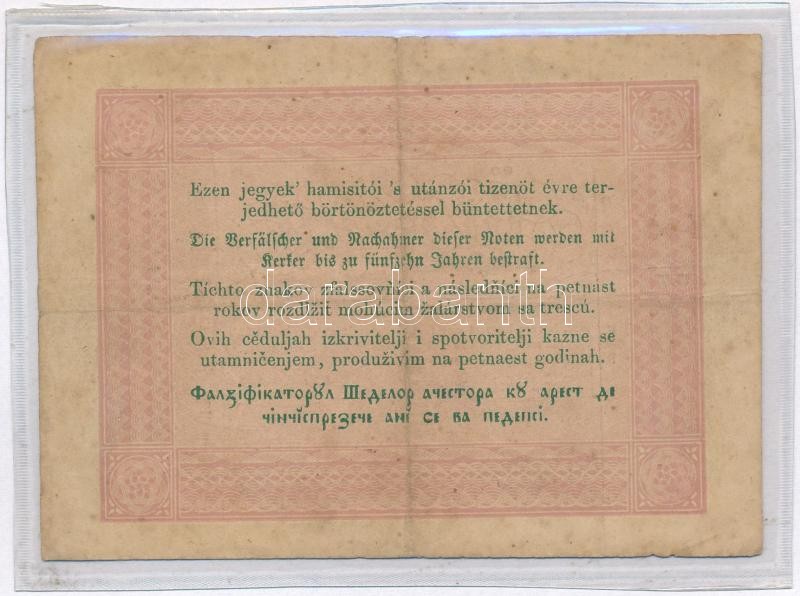 Ezen jegyek' hamisitói 's utánzói tizenöt évre ter-
jedhető börtönöztetéssel büntettetnek.
Die Verfälscher und Nachahmer dieser Noten werden mit
Kerker bis zu fünfzehn Jahren bestraft.
Tíchto znakov a následňíci na petnást
rokov rozdlžiť mohúcím žalárstvom sa trescú.
Ovih cěduljah izkrivitelji i spotvoritelji kazne se
utamničenjem, produživim na petnaest godinah.
Фалꙁіфікаторꙋл Шеделор ачестора кꙋ арест де
чінчіспреꙁече ані се ва педепсі.
darabanth